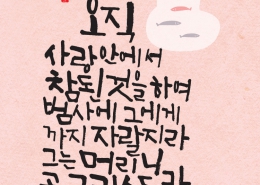 오직
사랑 안에서
참된 것을 하여
범사에 그에게
까지 자랄지라
그는 머리니
곧 그리스도라